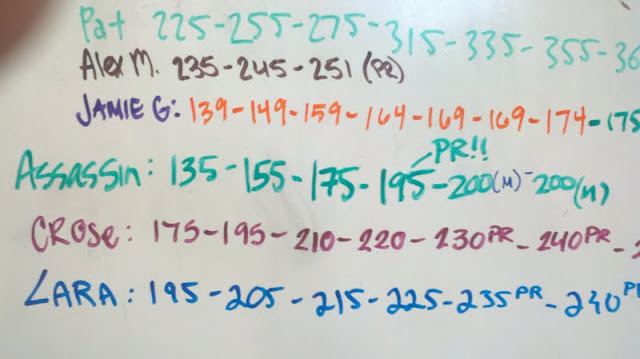 Pat 225-255-275-315-335-355-36
Alex M. 235-245-251 (PR)
JAMIE G: 139-149-159-164-169-169-174-175
PR!!
Assassin: 135-155-175-195-200(M)-200(M)
CROSE: 175-195-210-220-230PR-240PR-
LARA: 195-205-215-225-235PR-240